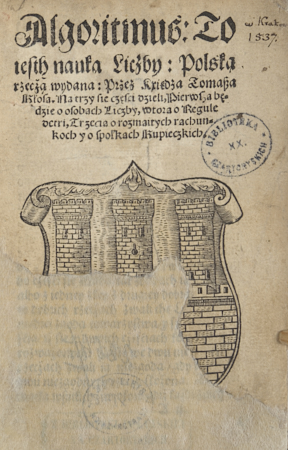 Algoritmus: To
iesth nauka Liczby: Polską
rzeczą wydana: Przez Xsiędza Tomasza
Kłosa. Na trzy sie części dzieli, Pierwsza bę-
dzie o osobach Liczby, wtora o Regule
detri, Trzecia o rozmaitych rachun-
koch y o społkach Kupieczkich.
w Krak.
1537.
BIBLIOTEKA
XX.
CZARTORYSKICH